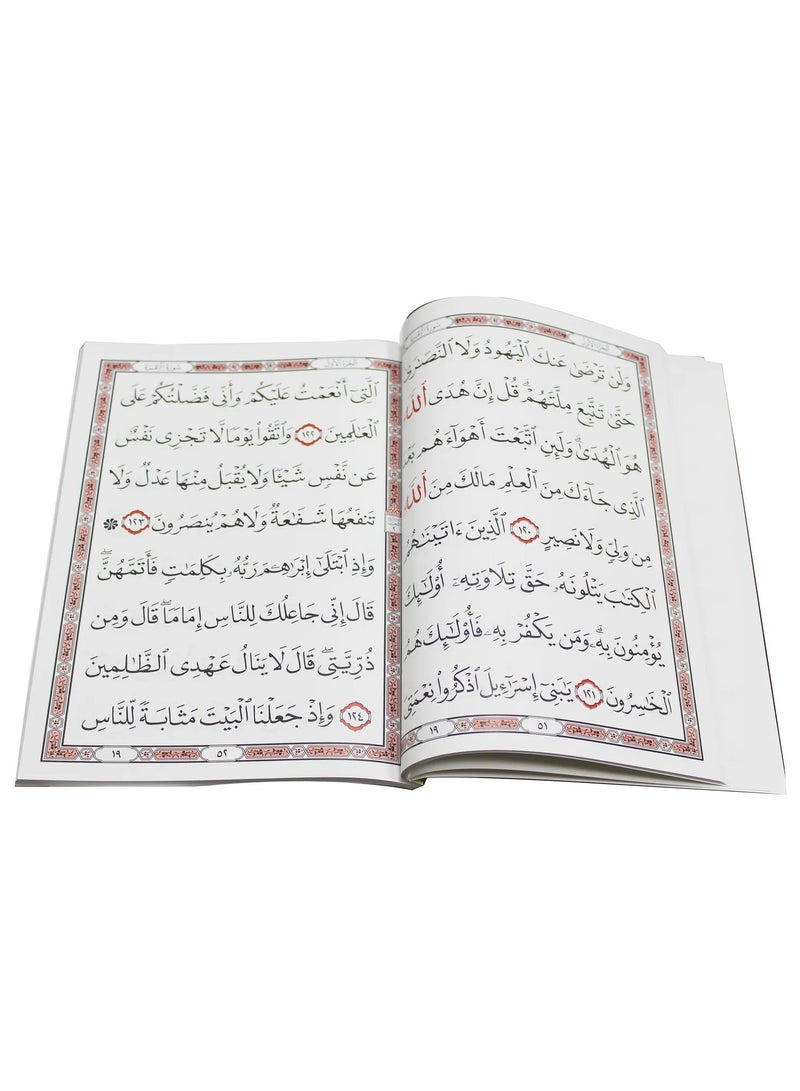 سورة البقرة الجزء الأول
وَلَن تَرْضَىٰ عَنكَ ٱلْيَهُودُ وَلَا ٱلنَّصَٰرَىٰ
حَتَّىٰ تَتَّبِعَ مِلَّتَهُمْ ۗ قُلْ إِنَّ هُدَى ٱللَّهِ
هُوَ ٱلْهُدَىٰ ۗ وَلَئِنِ ٱتَّبَعْتَ أَهْوَآءَهُم بَعْدَ
ٱلَّذِى جَآءَكَ مِنَ ٱلْعِلْمِ مَالَكَ مِنَ ٱللَّهِ
مِن وَلِىٍّ وَلَا نَصِيرٍ ١٢٠ ٱلَّذِينَ ءَاتَيْنَٰهُمُ
ٱلْكِتَٰبَ يَتْلُونَهُۥ حَقَّ تِلَاوَتِهِۦٓ أُو۟لَٰٓئِكَ
يُؤْمِنُونَ بِهِۦ ۗ وَمَن يَكْفُرْ بِهِۦ فَأُو۟لَٰٓئِكَ هُمُ
ٱلْخَٰسِرُونَ ١٢١ يَٰبَنِىٓ إِسْرَٰٓءِيلَ ٱذْكُرُوا۟ نِعْمَتِىَ
٥١ ١٩
سورة البقرة الجزء الأول
ٱلَّتِىٓ أَنْعَمْتُ عَلَيْكُمْ وَأَنِّى فَضَّلْتُكُمْ عَلَى
ٱلْعَٰلَمِينَ ١٢٢ وَٱتَّقُوا۟ يَوْمًا لَّا تَجْزِى نَفْسٌ
عَن نَّفْسٍ شَيْـًٔا وَلَا يُقْبَلُ مِنْهَا عَدْلٌ وَلَا
تَنفَعُهَا شَفَٰعَةٌ وَلَا هُمْ يُنصَرُونَ ١٢٣ ۞
وَإِذِ ٱبْتَلَىٰٓ إِبْرَٰهِـۧمَ رَبُّهُۥ بِكَلِمَٰتٍ فَأَتَمَّهُنَّ ۖ
قَالَ إِنِّى جَاعِلُكَ لِلنَّاسِ إِمَامًا ۖ قَالَ وَمِن
ذُرِّيَّتِى ۖ قَالَ لَا يَنَالُ عَهْدِى ٱلظَّٰلِمِينَ
١٢٤ وَإِذْ جَعَلْنَا ٱلْبَيْتَ مَثَابَةً لِّلنَّاسِ
٥٢ ١٩